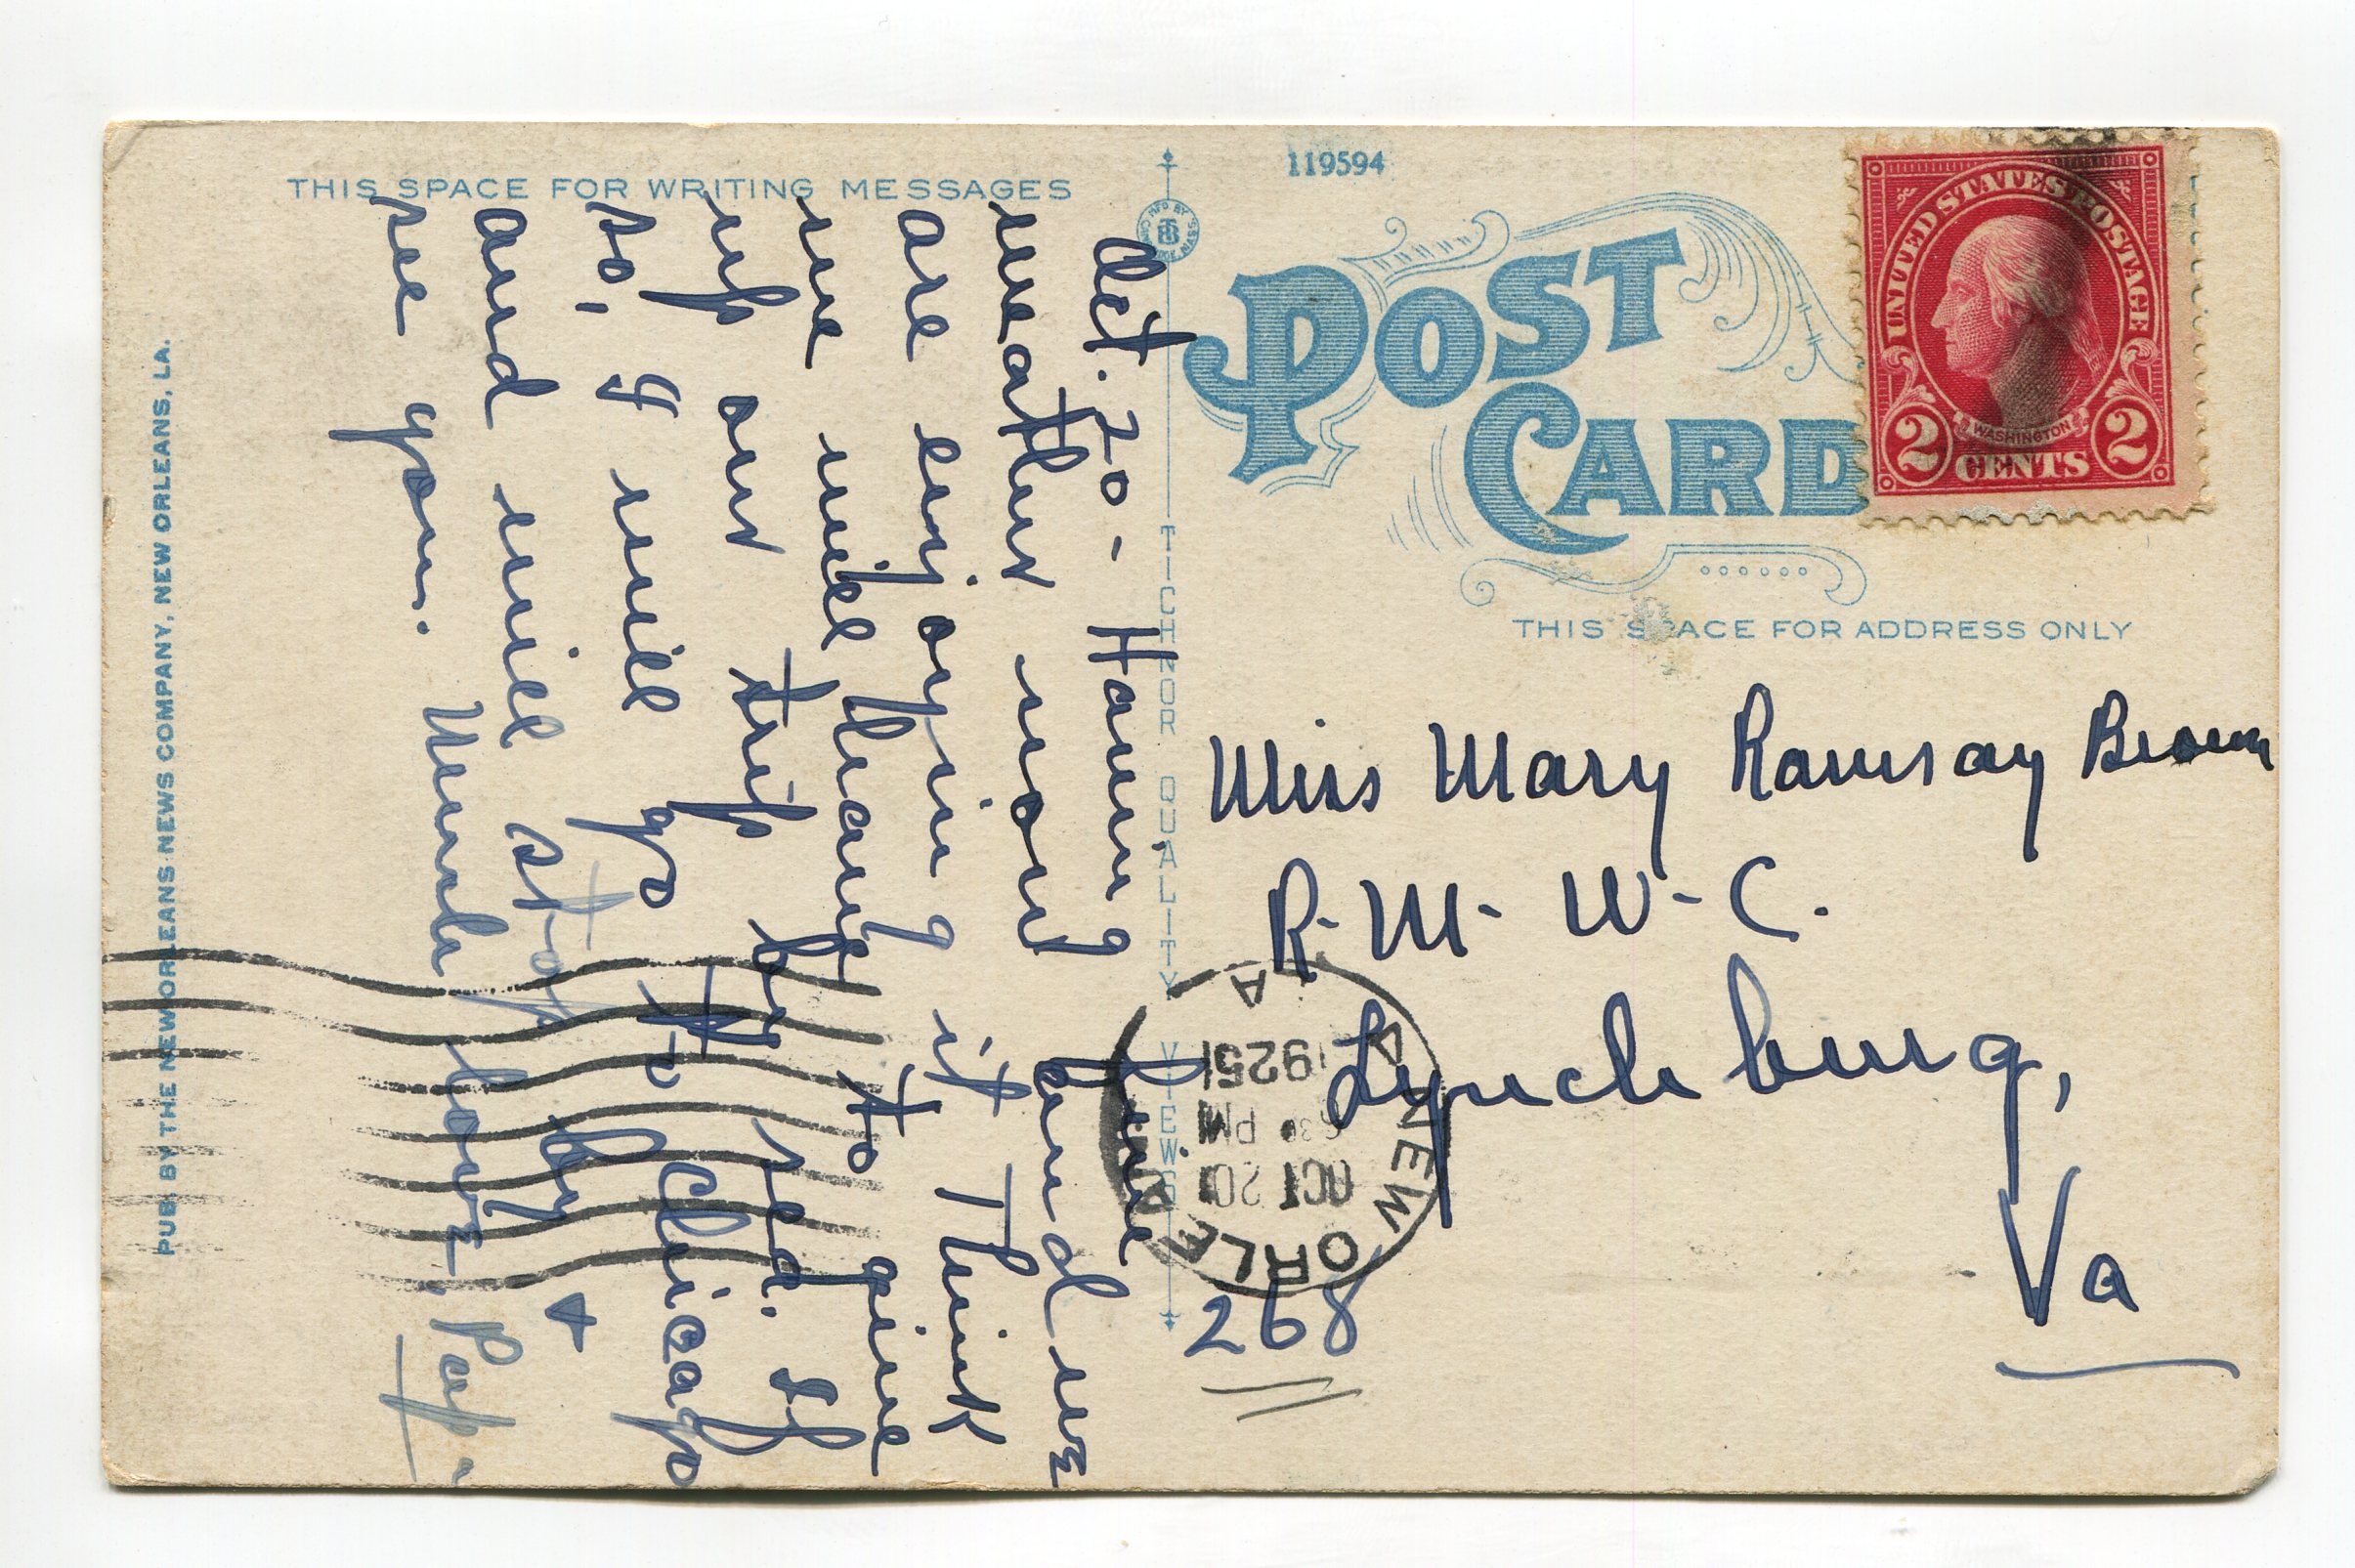 THIS SPACE FOR WRITING MESSAGES
Oct. 20 - Having fine
weather now and we
are enjoying it Think
we will have to give
up our trip by sea. If
so, I will go to Chicago
and will stop by +
see you. Much love, Papa
PUB. BY THE NEW ORLEANS NEWS COMPANY, NEW ORLEANS, LA.
TICHNOR QUALITY VIEWS
119594
POST
CARD
UNITED STATES POSTAGE
WASHINGTON
2 CENTS 2
THIS SPACE FOR ADDRESS ONLY
Miss Mary Ramsay Brown
R. M. W. C.
Lynchburg,
Va
NEW ORLEANS
OCT 20
630 PM
1925
268